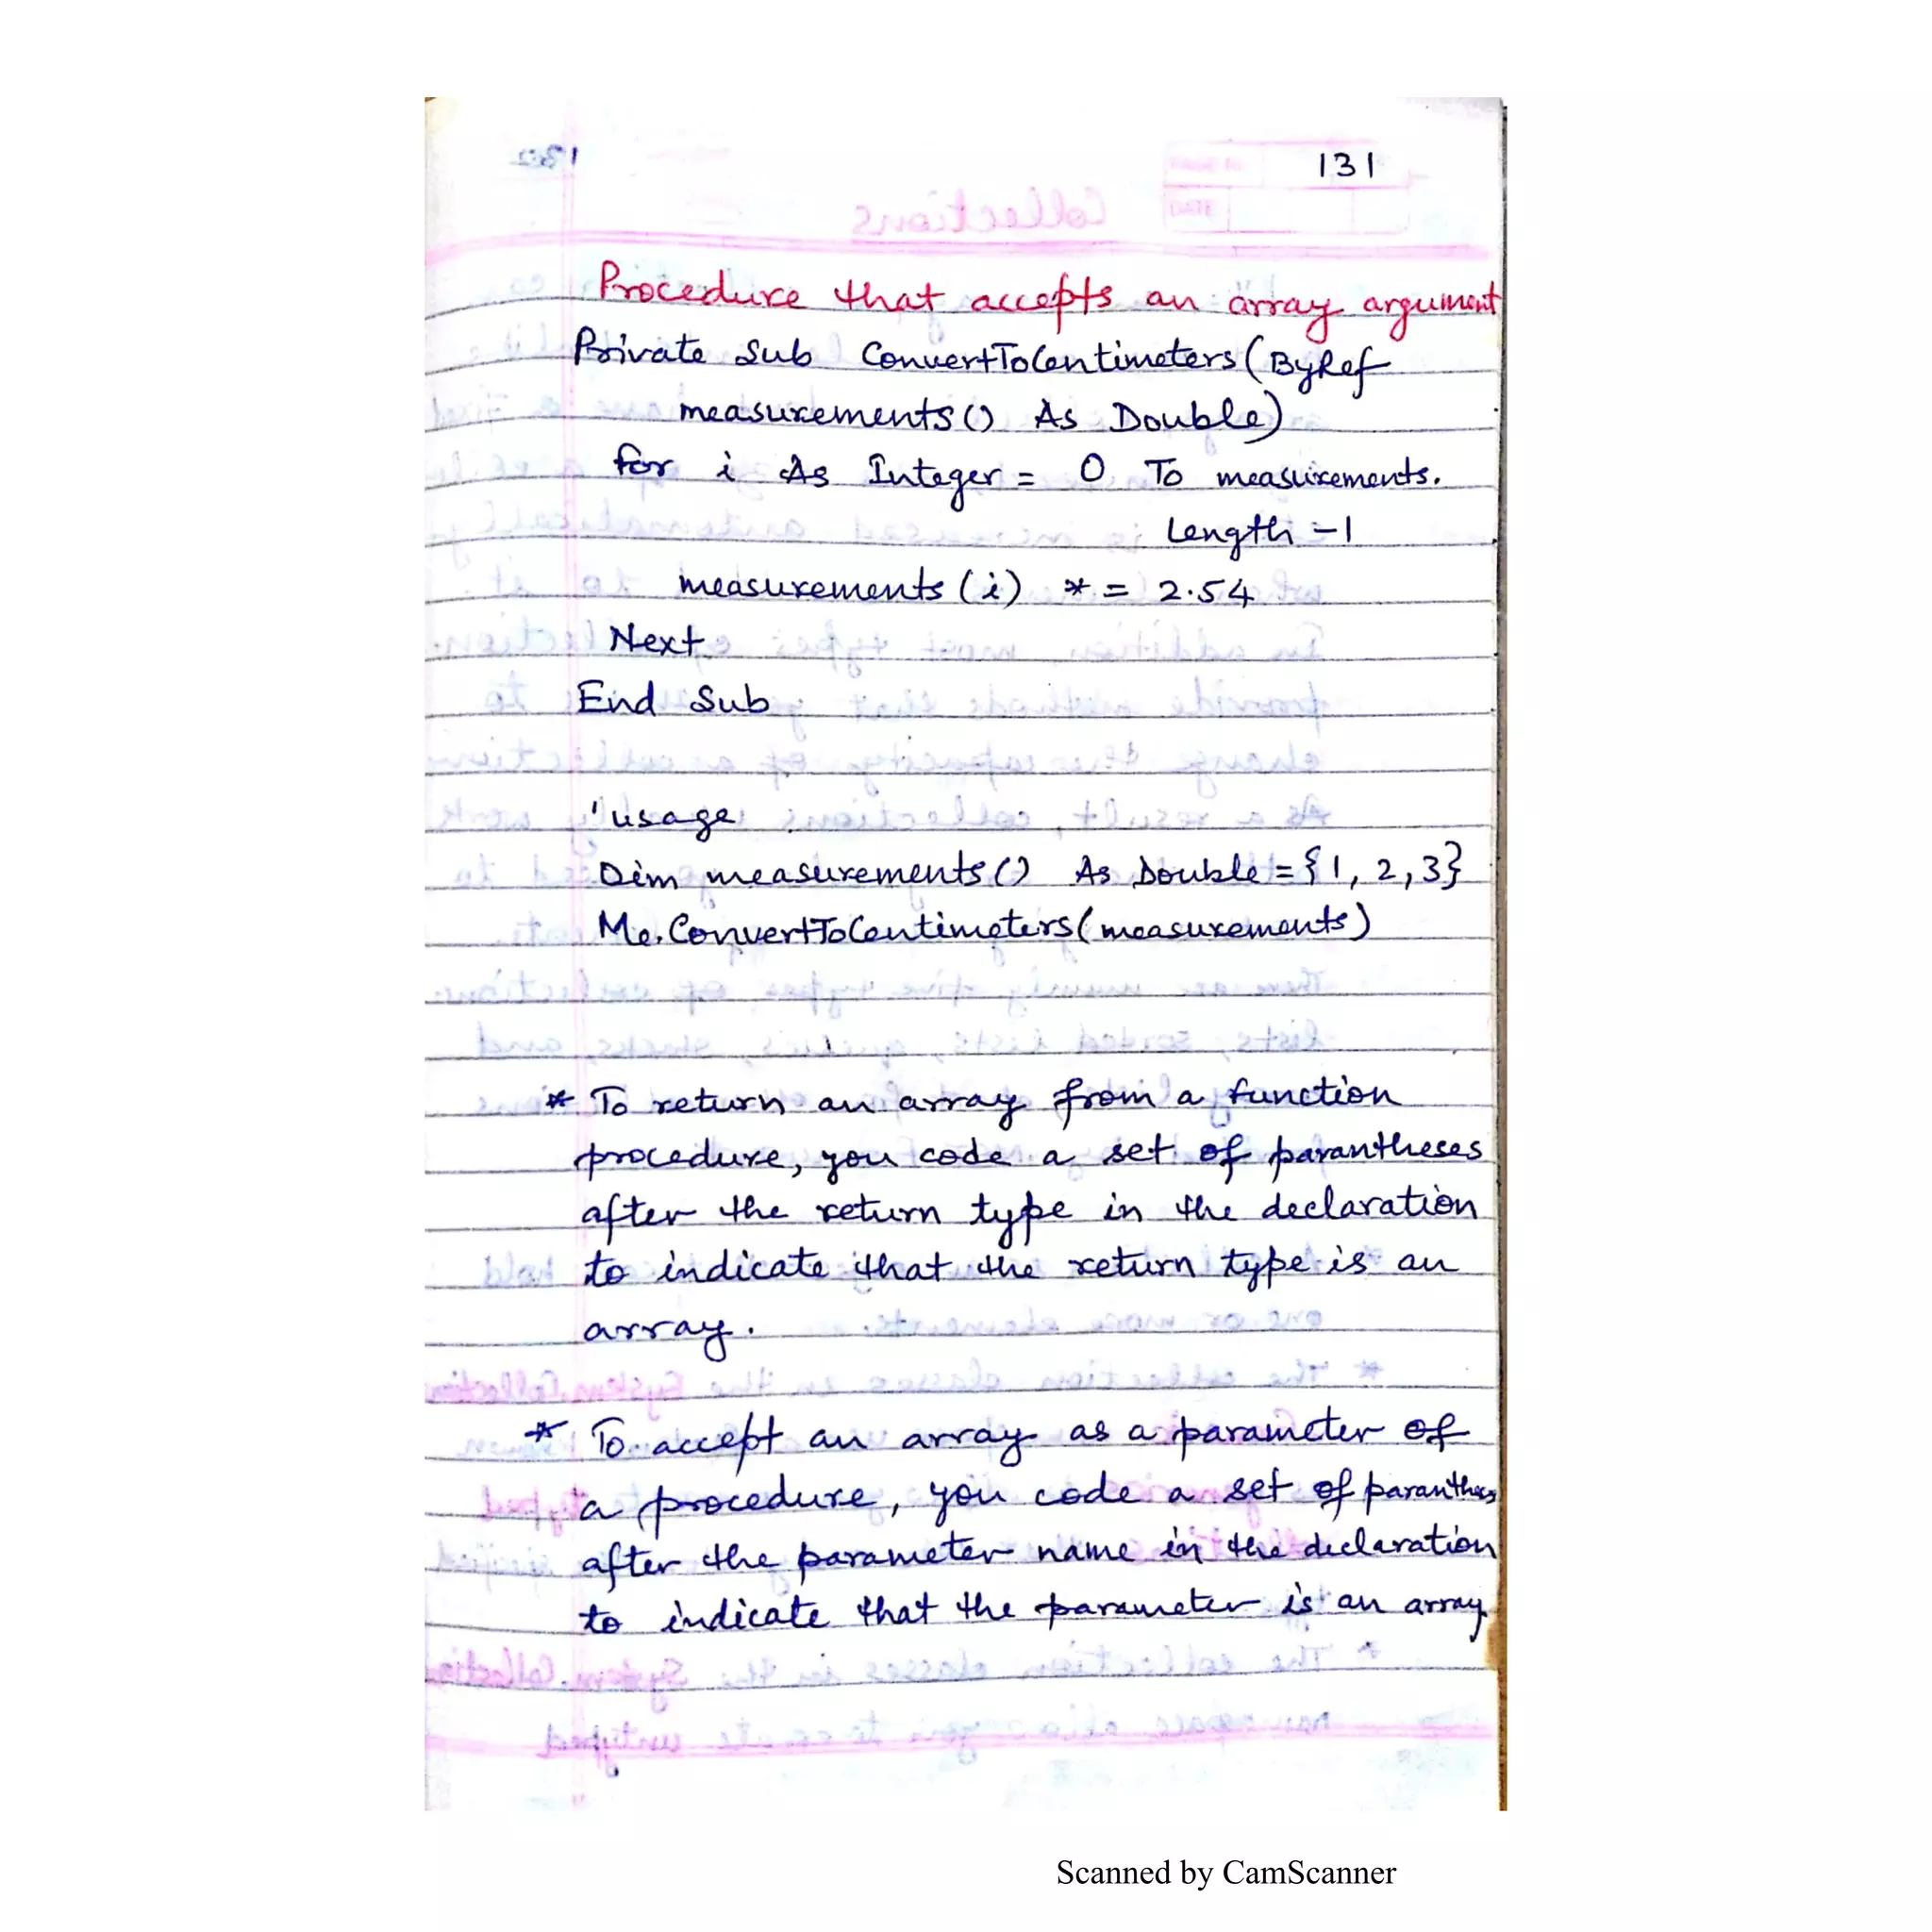 131
Procedure that accepts an array argument
Private Sub ConvertToCentimeters(ByRef
measurements() As Double)
for i As Integer = 0 To measurements.
Length -1
measurements(i) *= 2.54
Next
End Sub
'usage
Dim measurements() As Double = {1, 2, 3}
Me.ConvertToCentimeters(measurements)
* To return an array from a function
procedure, you code a set of parantheses
after the return type in the declaration
to indicate that the return type is an
array.
* To accept an array as a parameter of
a procedure, you code a set of parantheses
after the parameter name in the declaration
to indicate that the parameter is an array
Scanned by CamScanner